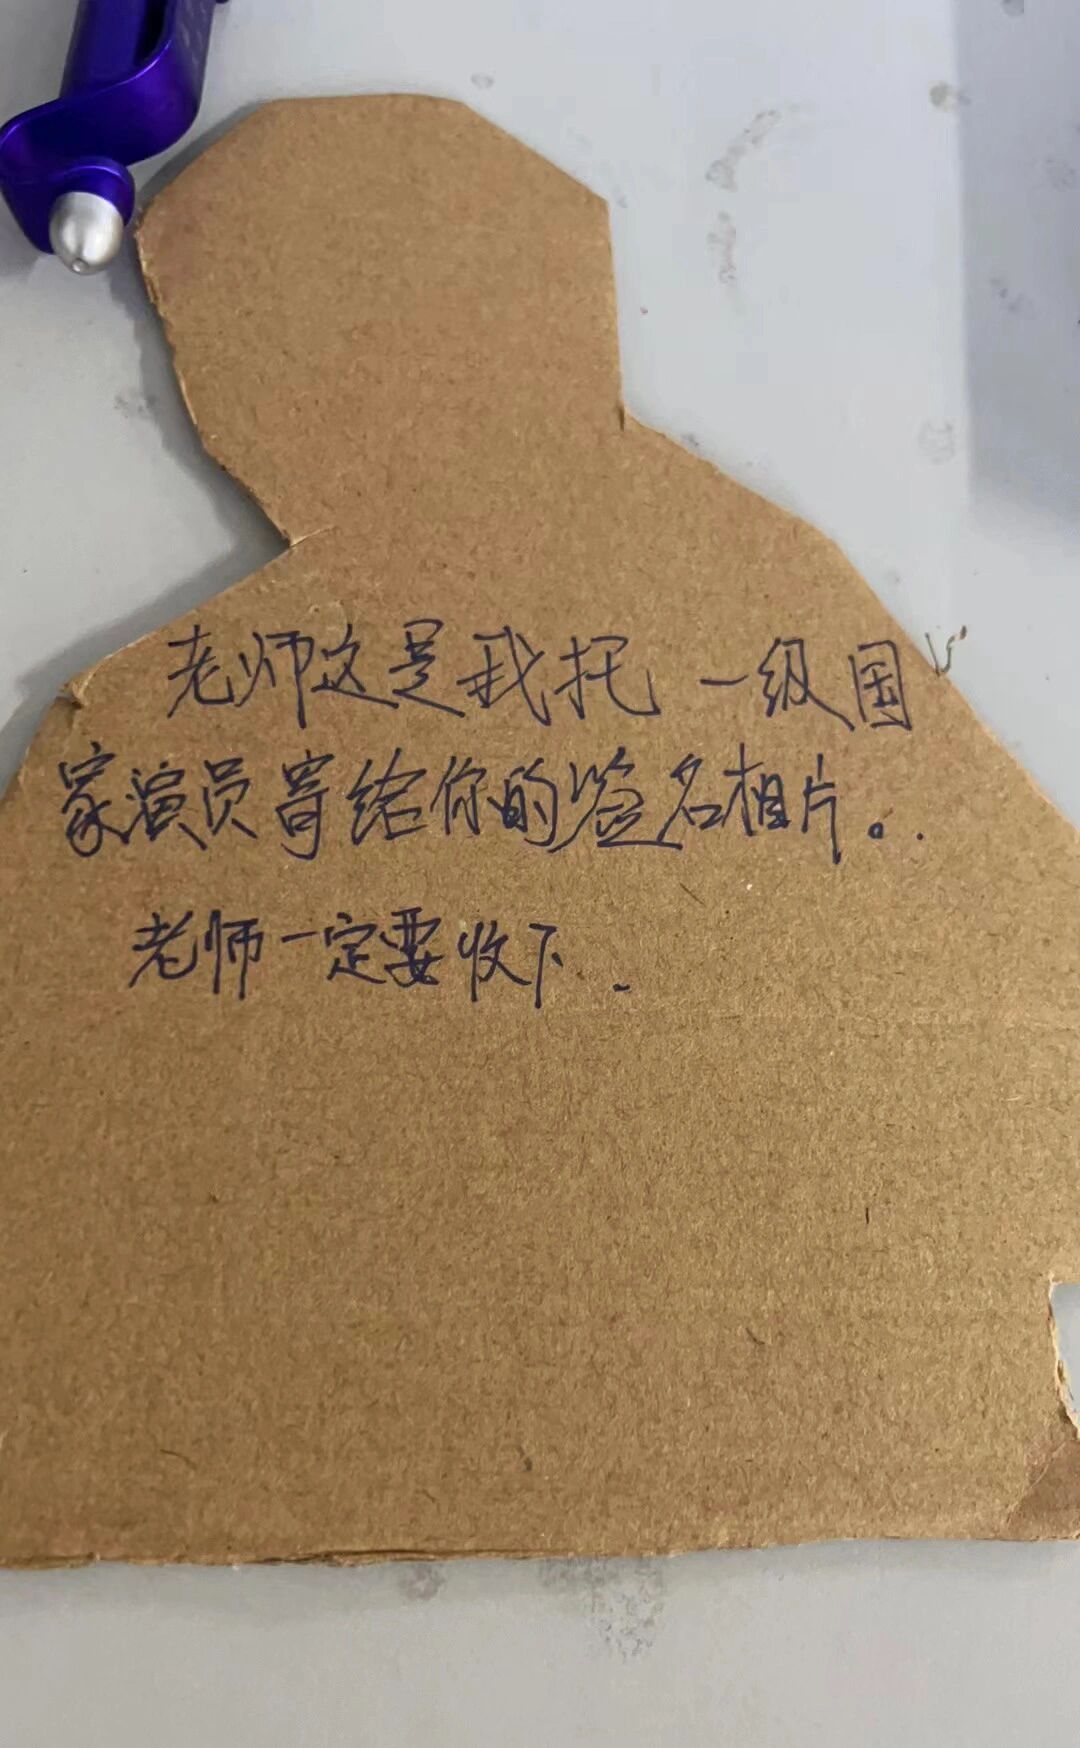 老师这是我托一级国
家演员寄给你的签名相片。.
老师一定要收下.